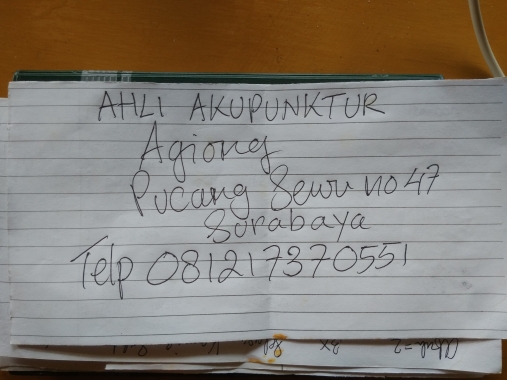 AHLI AKUPUNKTUR
Agiong
Pucang Sewu no 47
Surabaya
Telp 081217370551